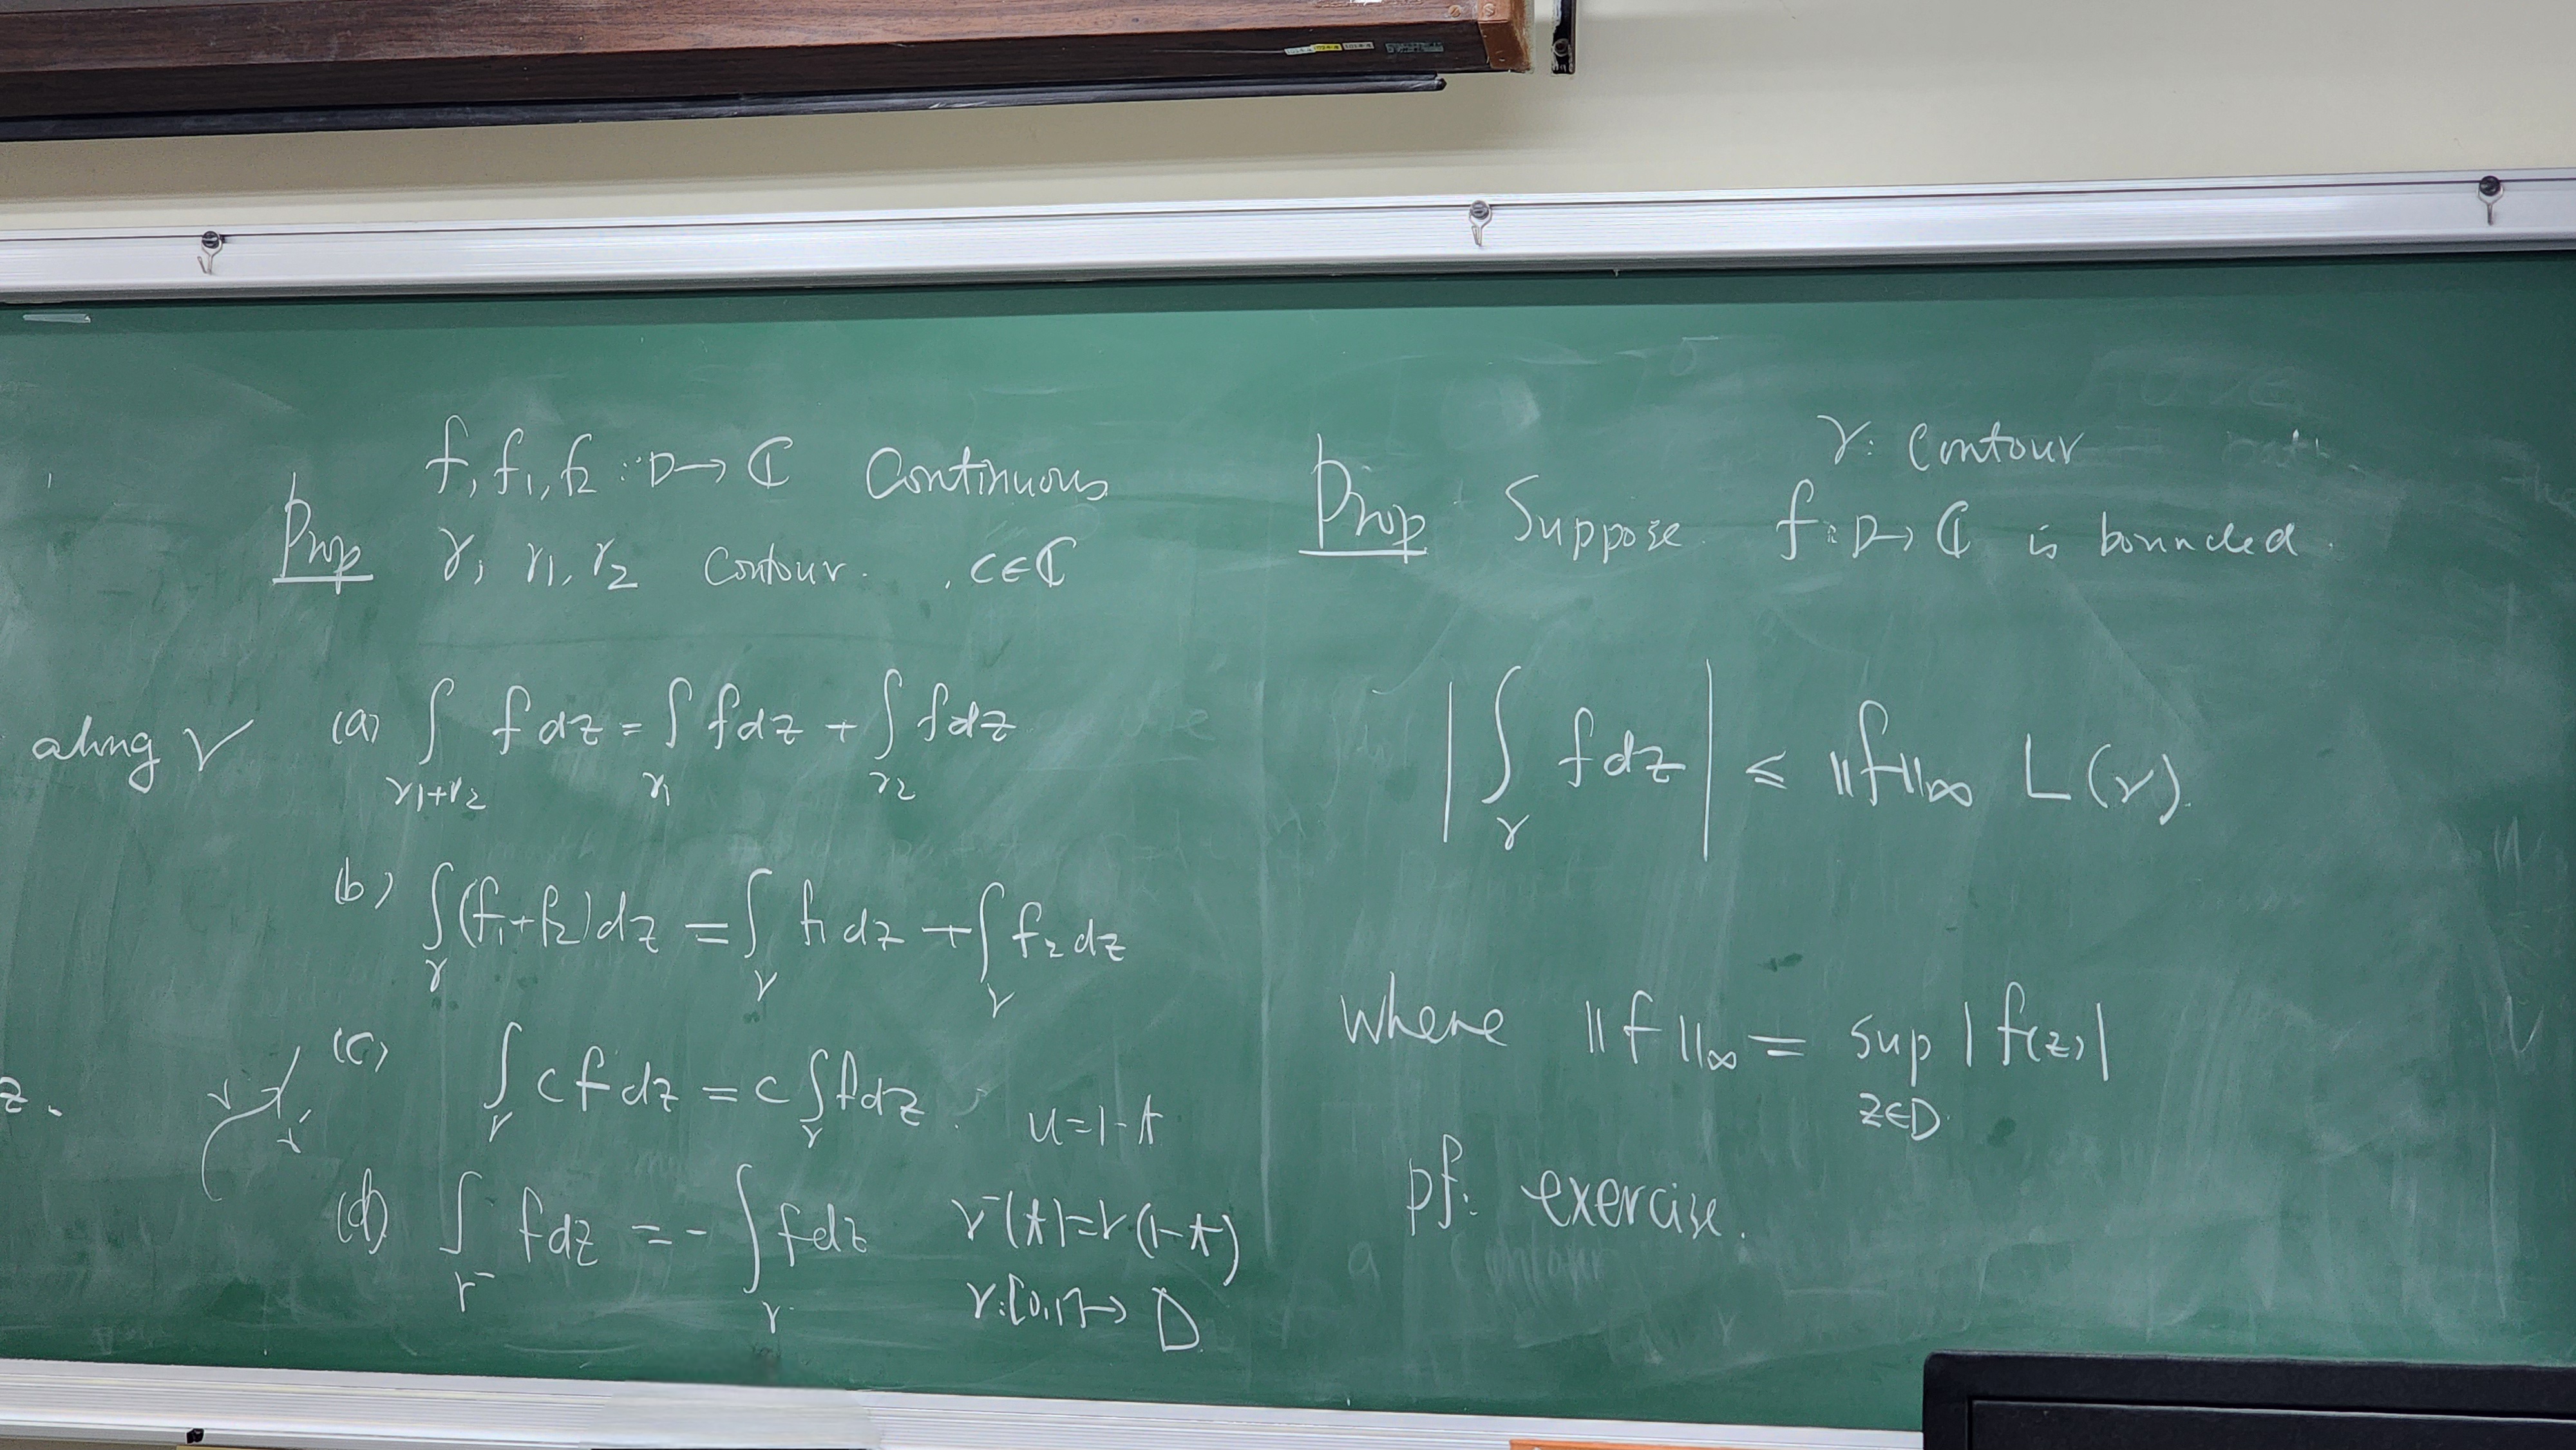 along γ
z.
γ
γ⁻
f, f₁, f₂ : D → ℂ Continuous
Prop γ, γ₁, γ₂ Contour. , c∈ℂ
(a) ∫_{γ₁+γ₂} f dz = ∫_{γ₁} f dz + ∫_{γ₂} f dz
(b) ∫_γ (f₁+f₂) dz = ∫_γ f₁ dz + ∫_γ f₂ dz
(c) ∫_γ c f dz = c ∫_γ f dz.
u=1-t
(d) ∫_{γ⁻} f dz = - ∫_γ f dz γ⁻(t)=γ(1-t)
γ:[0,1] → D
γ: Contour
Prop Suppose f: D → ℂ is bounded.
| ∫_γ f dz | ≤ ‖f‖_∞ L(γ).
where ‖f‖_∞ = sup_{z∈D} |f(z)|
pf: exercise.